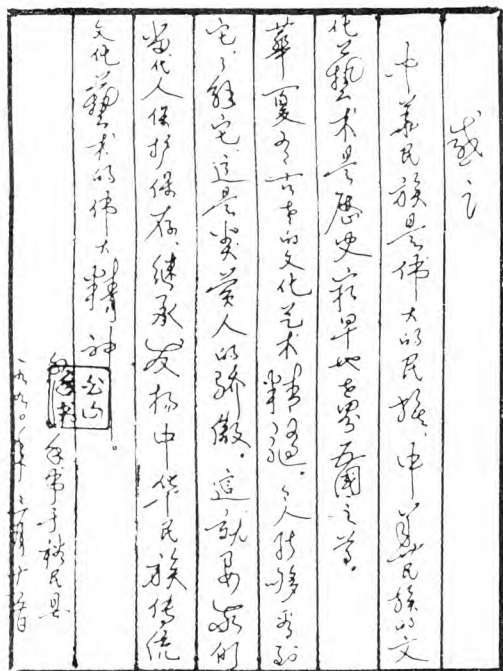 感言
中华民族是伟大的民族，中华民族的文
化艺术是历史最早也世界五国之首。
华夏有古老的文化艺术精髓。令人能够看到
它，了解它，这是炎黄人的骄傲。这就要我们
当代人保护保存、继承发扬中华民族传统
文化艺术的伟大精神。
一九九〇年三月十五日